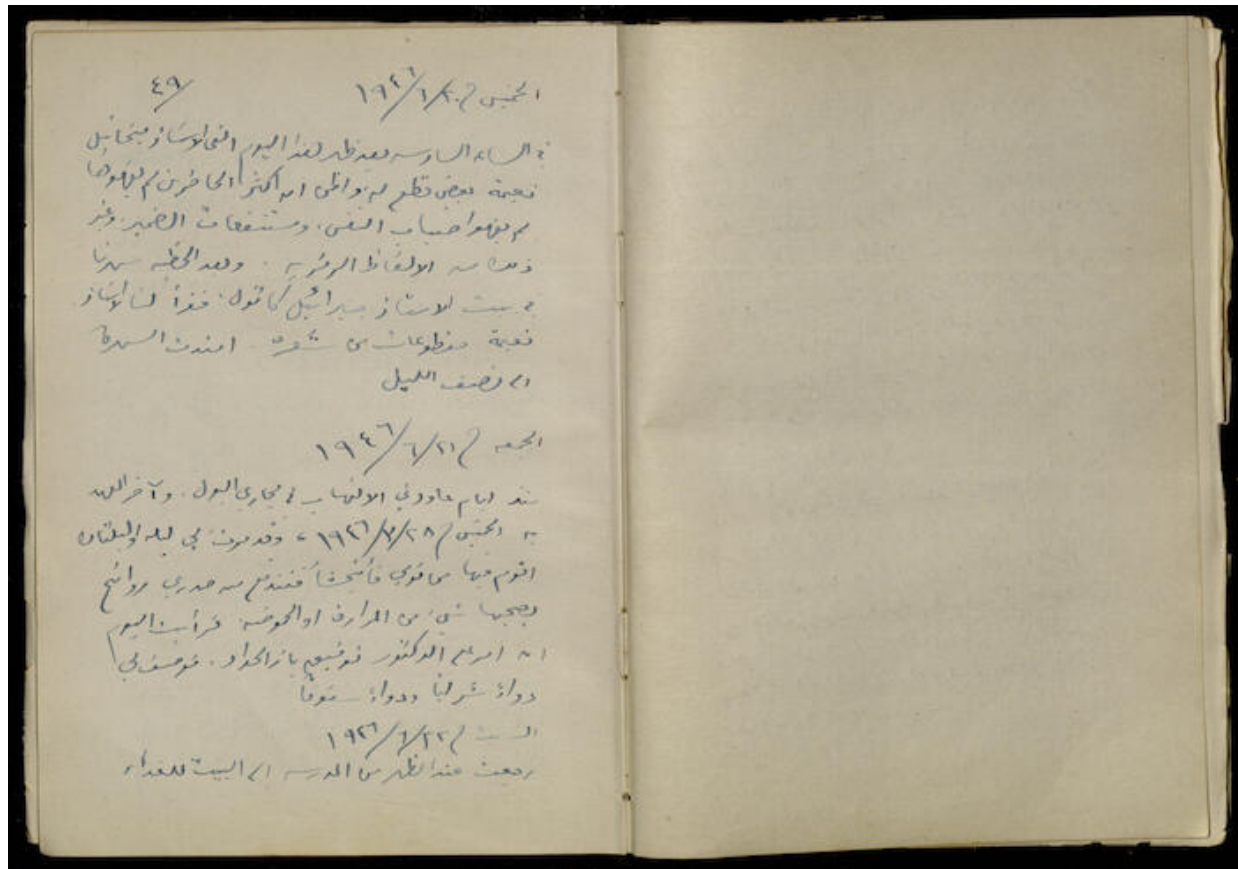 الخميس في ٢٠/٦/١٩٤٦ ٤٩/
في الساعة السادسة بعد ظهر هذا اليوم القى الاستاذ ميخائيل
نعيمة بعض قطع له. واظن ان اكثر الحاضرين لم يفهموها
لم يفهموا ضباب النفس، ومستنقعات الضمير. وغير
ذلك من الالفاظ الرمزية. وبعد الخطبة سهرنا
في بيت الاستاذ جبرائيل كاتول. فقرأ لنا الاستاذ
نعيمة مقطوعات من شعره. امتدت السهرة
الى نصف الليل
الجمعة في ٢١/٦/١٩٤٦
منذ ايام عاودني الالتهاب في مجاري البول. وآخر العهد
به الخميس في ٢٨/٣/١٩٤٦، وقد مرت بي ليلة او ليلتان
اقوم فيها من نومي فأتجشأ فتندفع من صدري روائح
يصحبها شيء من المرارة او الحموضة. فرأيت اليوم
ان امر على الدكتور توفيق باز الحداد. فوصف لي
دواءً شراباً ودواءً سفوفاً
السبت في ٢٢/٦/١٩٤٦
رجعت عند الظهر من المدرسة الى البيت للغداء